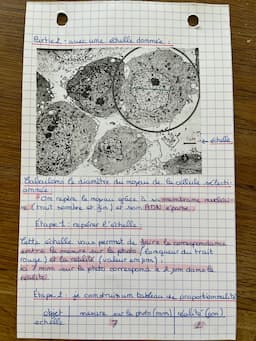 Partie 2 : avec une échelle donnée.
échelle
Calculons le diamètre du noyau de la cellule sélecti-
onnée.
On repère le noyau grâce à sa membrane nucléai-
re (trait sombre et fin) et son ADN éparse.
Etape 1 : repérer l'échelle.
Cette échelle vous permet de faire la correspondance
entre la mesure sur la photo (longueur du trait
rouge) et la réalité (valeur en µm).
7 mm sur la photo correspond à 2 µm dans la
réalité.
Etape 2 : je construis un tableau de proportionnalité
objet mesure sur la photo (mm) réalité (µm)
échelle 7 2